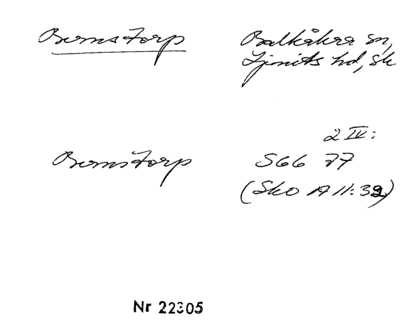 Bernstorp
Balkåkra sn,
Ljunits hd, Sk
2 IV:
Bernstorp
S66 77
(Sko A II:32)
Nr 22305